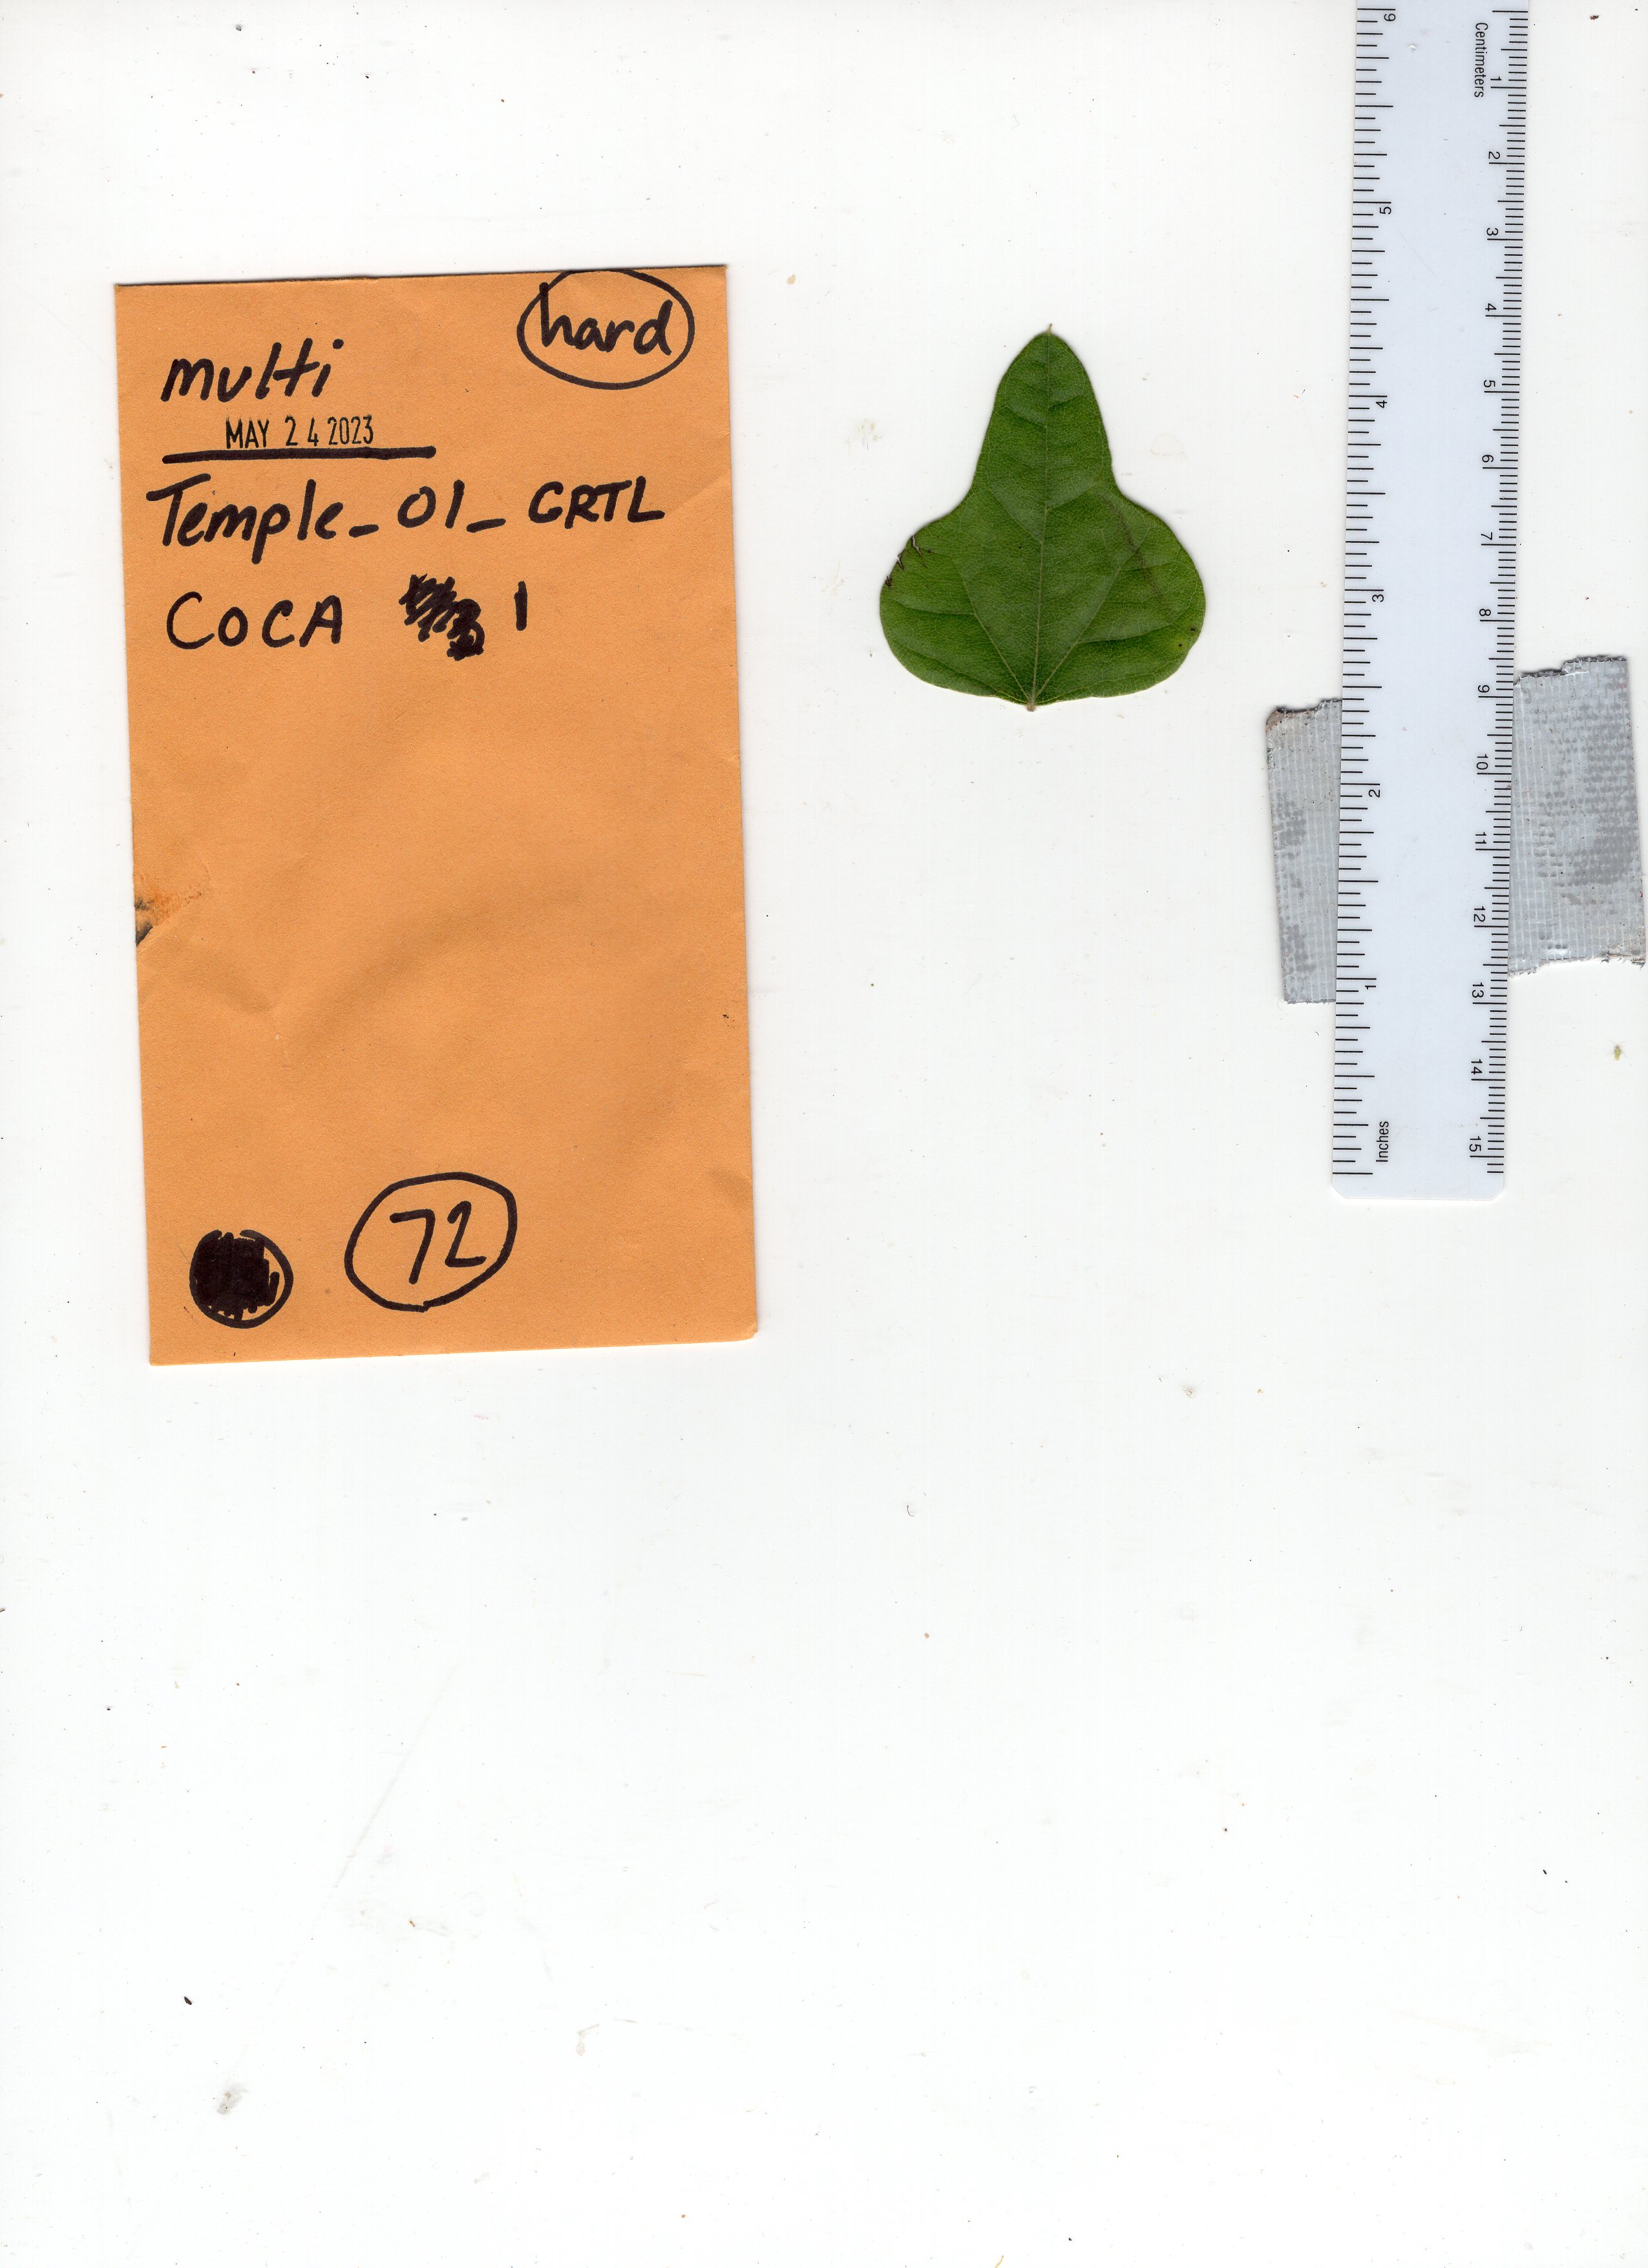 hard
multi
MAY 24 2023
Temple_01_GRTL
COCA 1
72
Centimeters
1
2
3
4
5
6
7
8
9
10
11
12
13
14
15
6
5
4
3
2
1
Inches